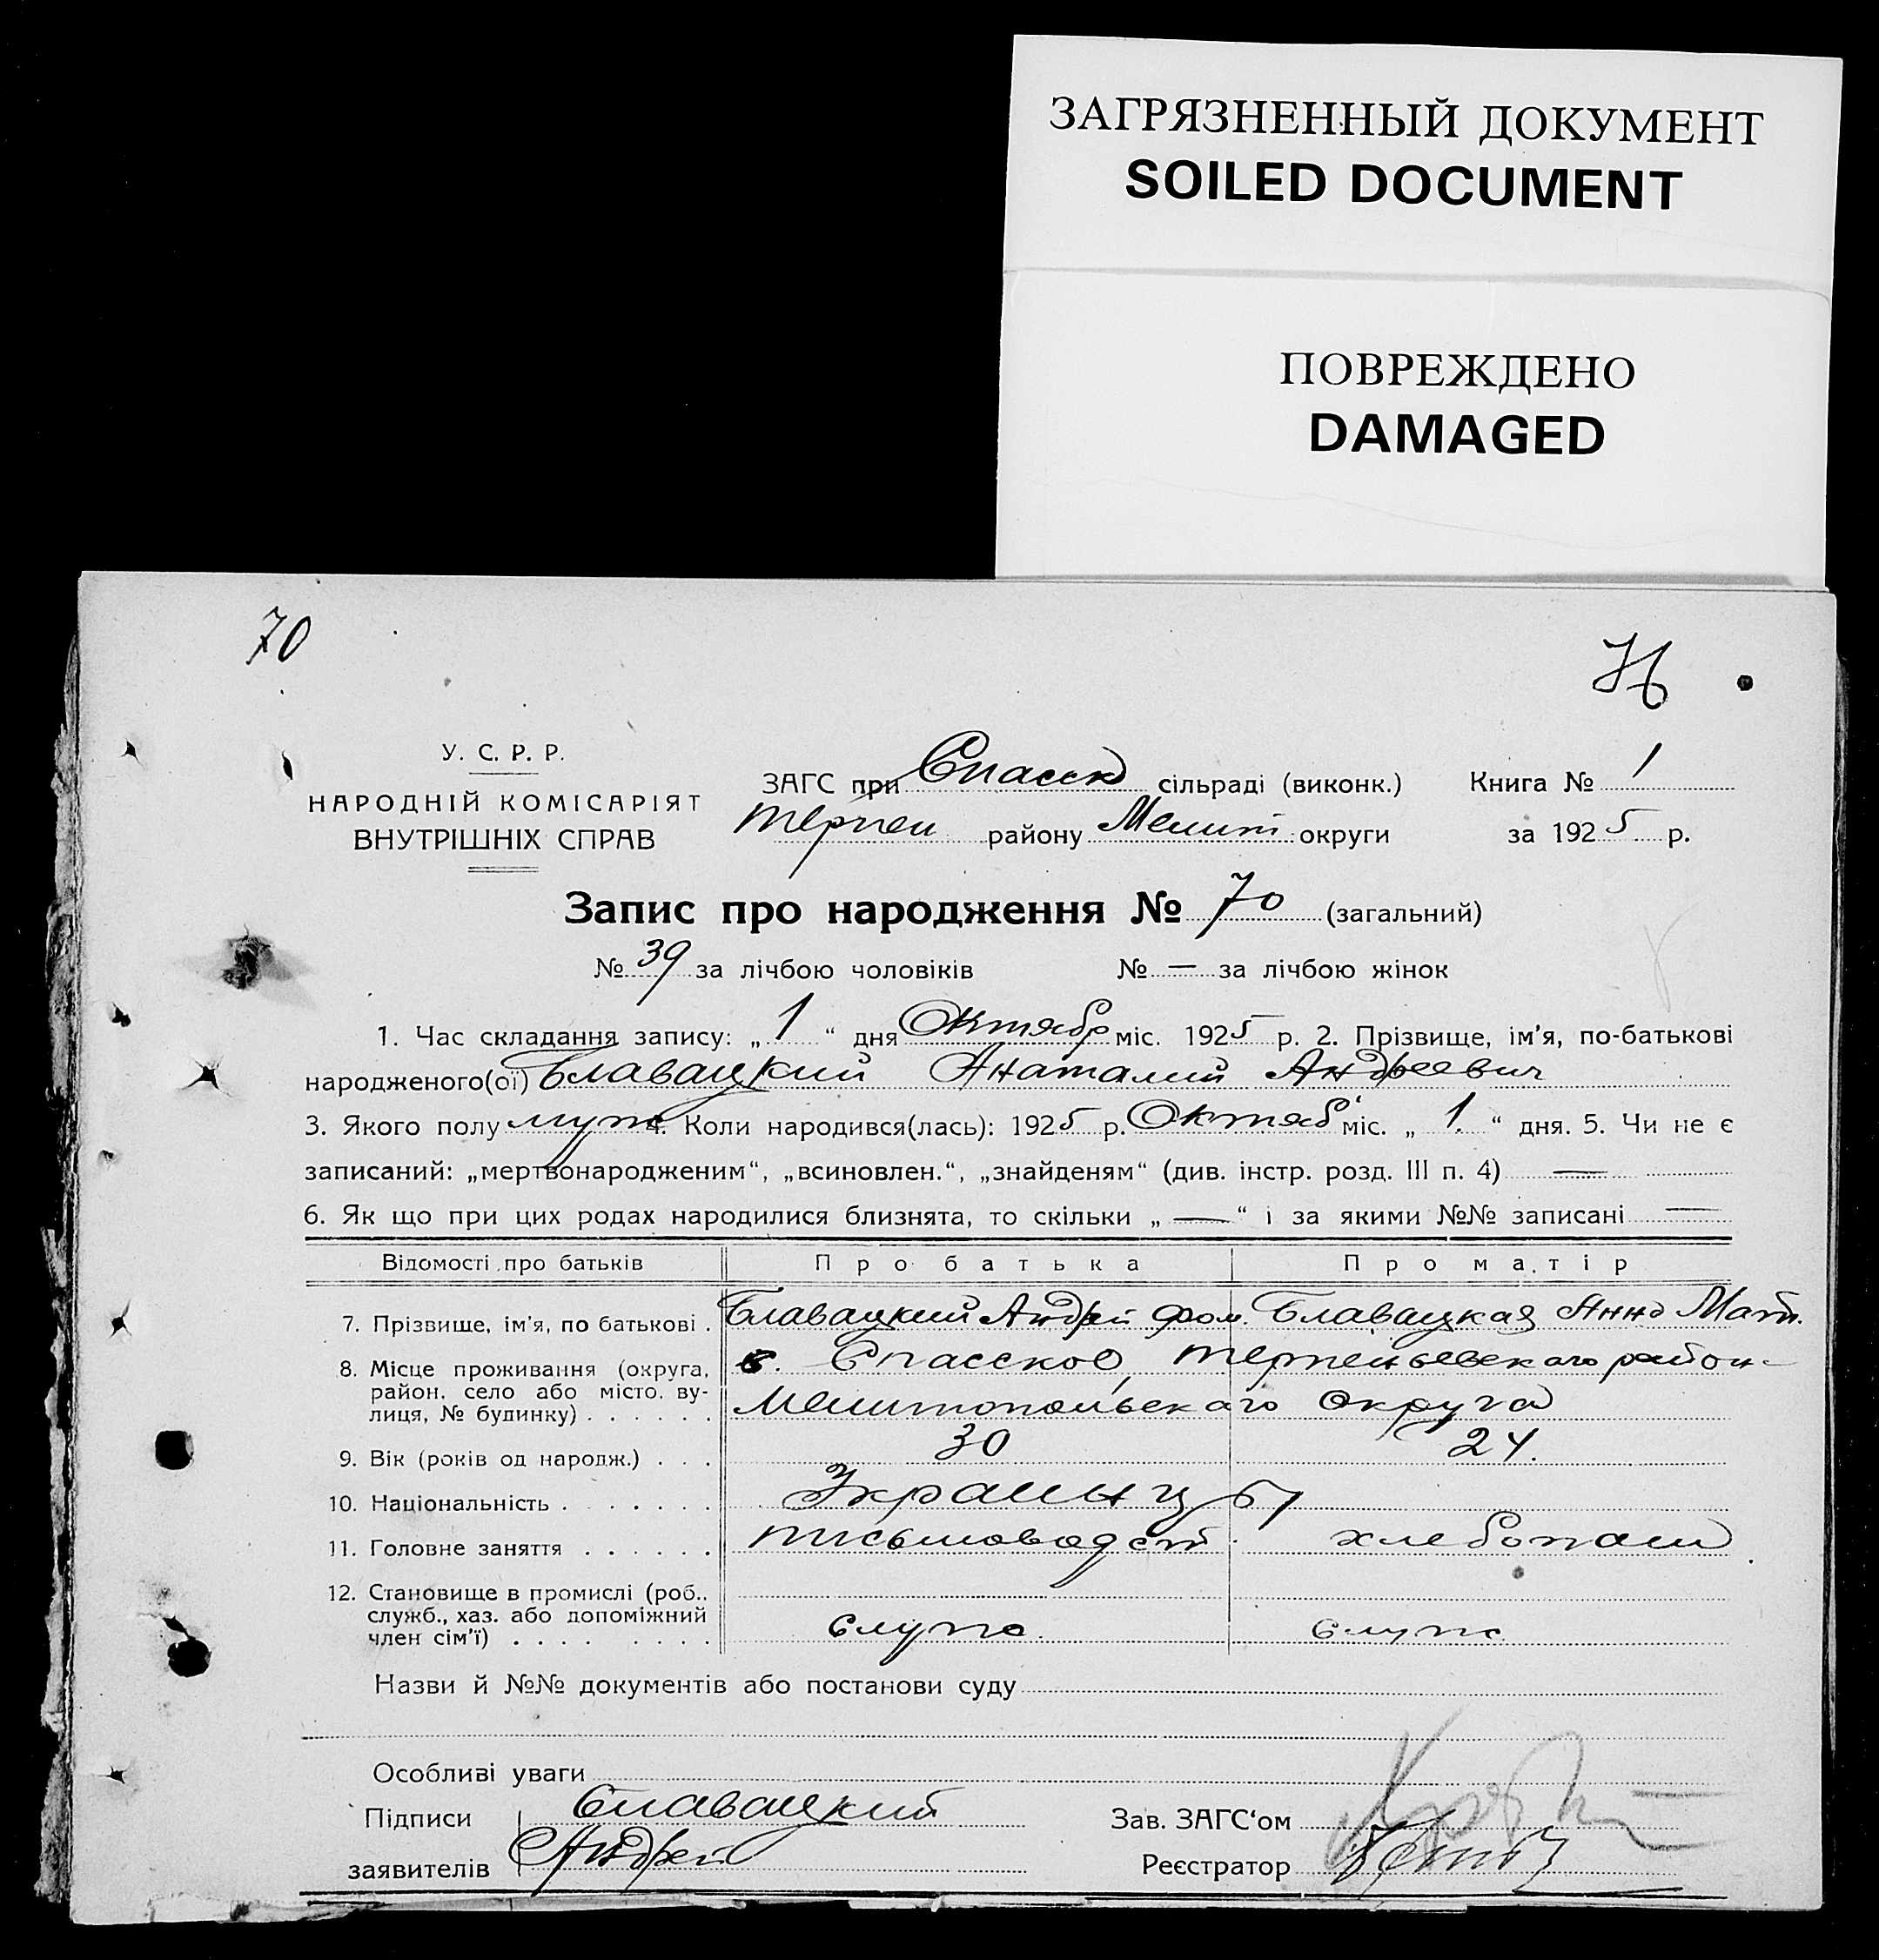 ЗАГРЯЗНЕННЫЙ ДОКУМЕНТ
SOILED DOCUMENT
ПОВРЕЖДЕНО
DAMAGED
70
У. С. Р. Р.
НАРОДНІЙ КОМІСАРІЯТ
ВНУТРІШНІХ СПРАВ
ЗАГС при Спасск сільраді (виконк.) Книга № 1
Терпен району Мелит округи за 1925 р.
Запис про народження № 70 (загальний)
№ 39 за лічбою чоловіків № — за лічбою жінок
1. Час складання запису: „ 1 “ дня Октябр міс. 1925 р. 2. Прізвище, ім'я, по-батькові
народженого(ої) Блавацкий Анаталий Андреевич
3. Якого полу муж 4. Коли народився(лась): 1925 р. Октяб міс. „ 1. “ дня. 5. Чи не є
записаний: „мертвонародженим“, „всиновлен.“, „знайденям“ (див. інстр. розд. III п. 4) —
6. Як що при цих родах народилися близнята, то скільки „ — “ і за якими №№ записані —
Відомості про батьків Про батька Про матір
7. Прізвище, ім'я, по батькові . Блавацкий Андрей Фом. Блавацкая Анна Матв.
8. Місце проживання (округа, район, село або місто, вулиця, № будинку) . . . . . . с. Спасское, Терпеньевского район
Мелитопольского округа
9. Вік (років од народж.) . . . 30 24.
10. Національність . . . . . . . Украинцы
11. Головне заняття . . . . . . письмоводст. хлебопаш
12. Становище в промислі (роб.,
служб., хаз. або допоміжний
член сім'ї) . . . . . . . . служ. служ.
Назви й №№ документів або постанови суду
Особливі уваги
Підписи Блавацкий Зав. ЗАГС'ом
заявителів Андрей Реєстратор